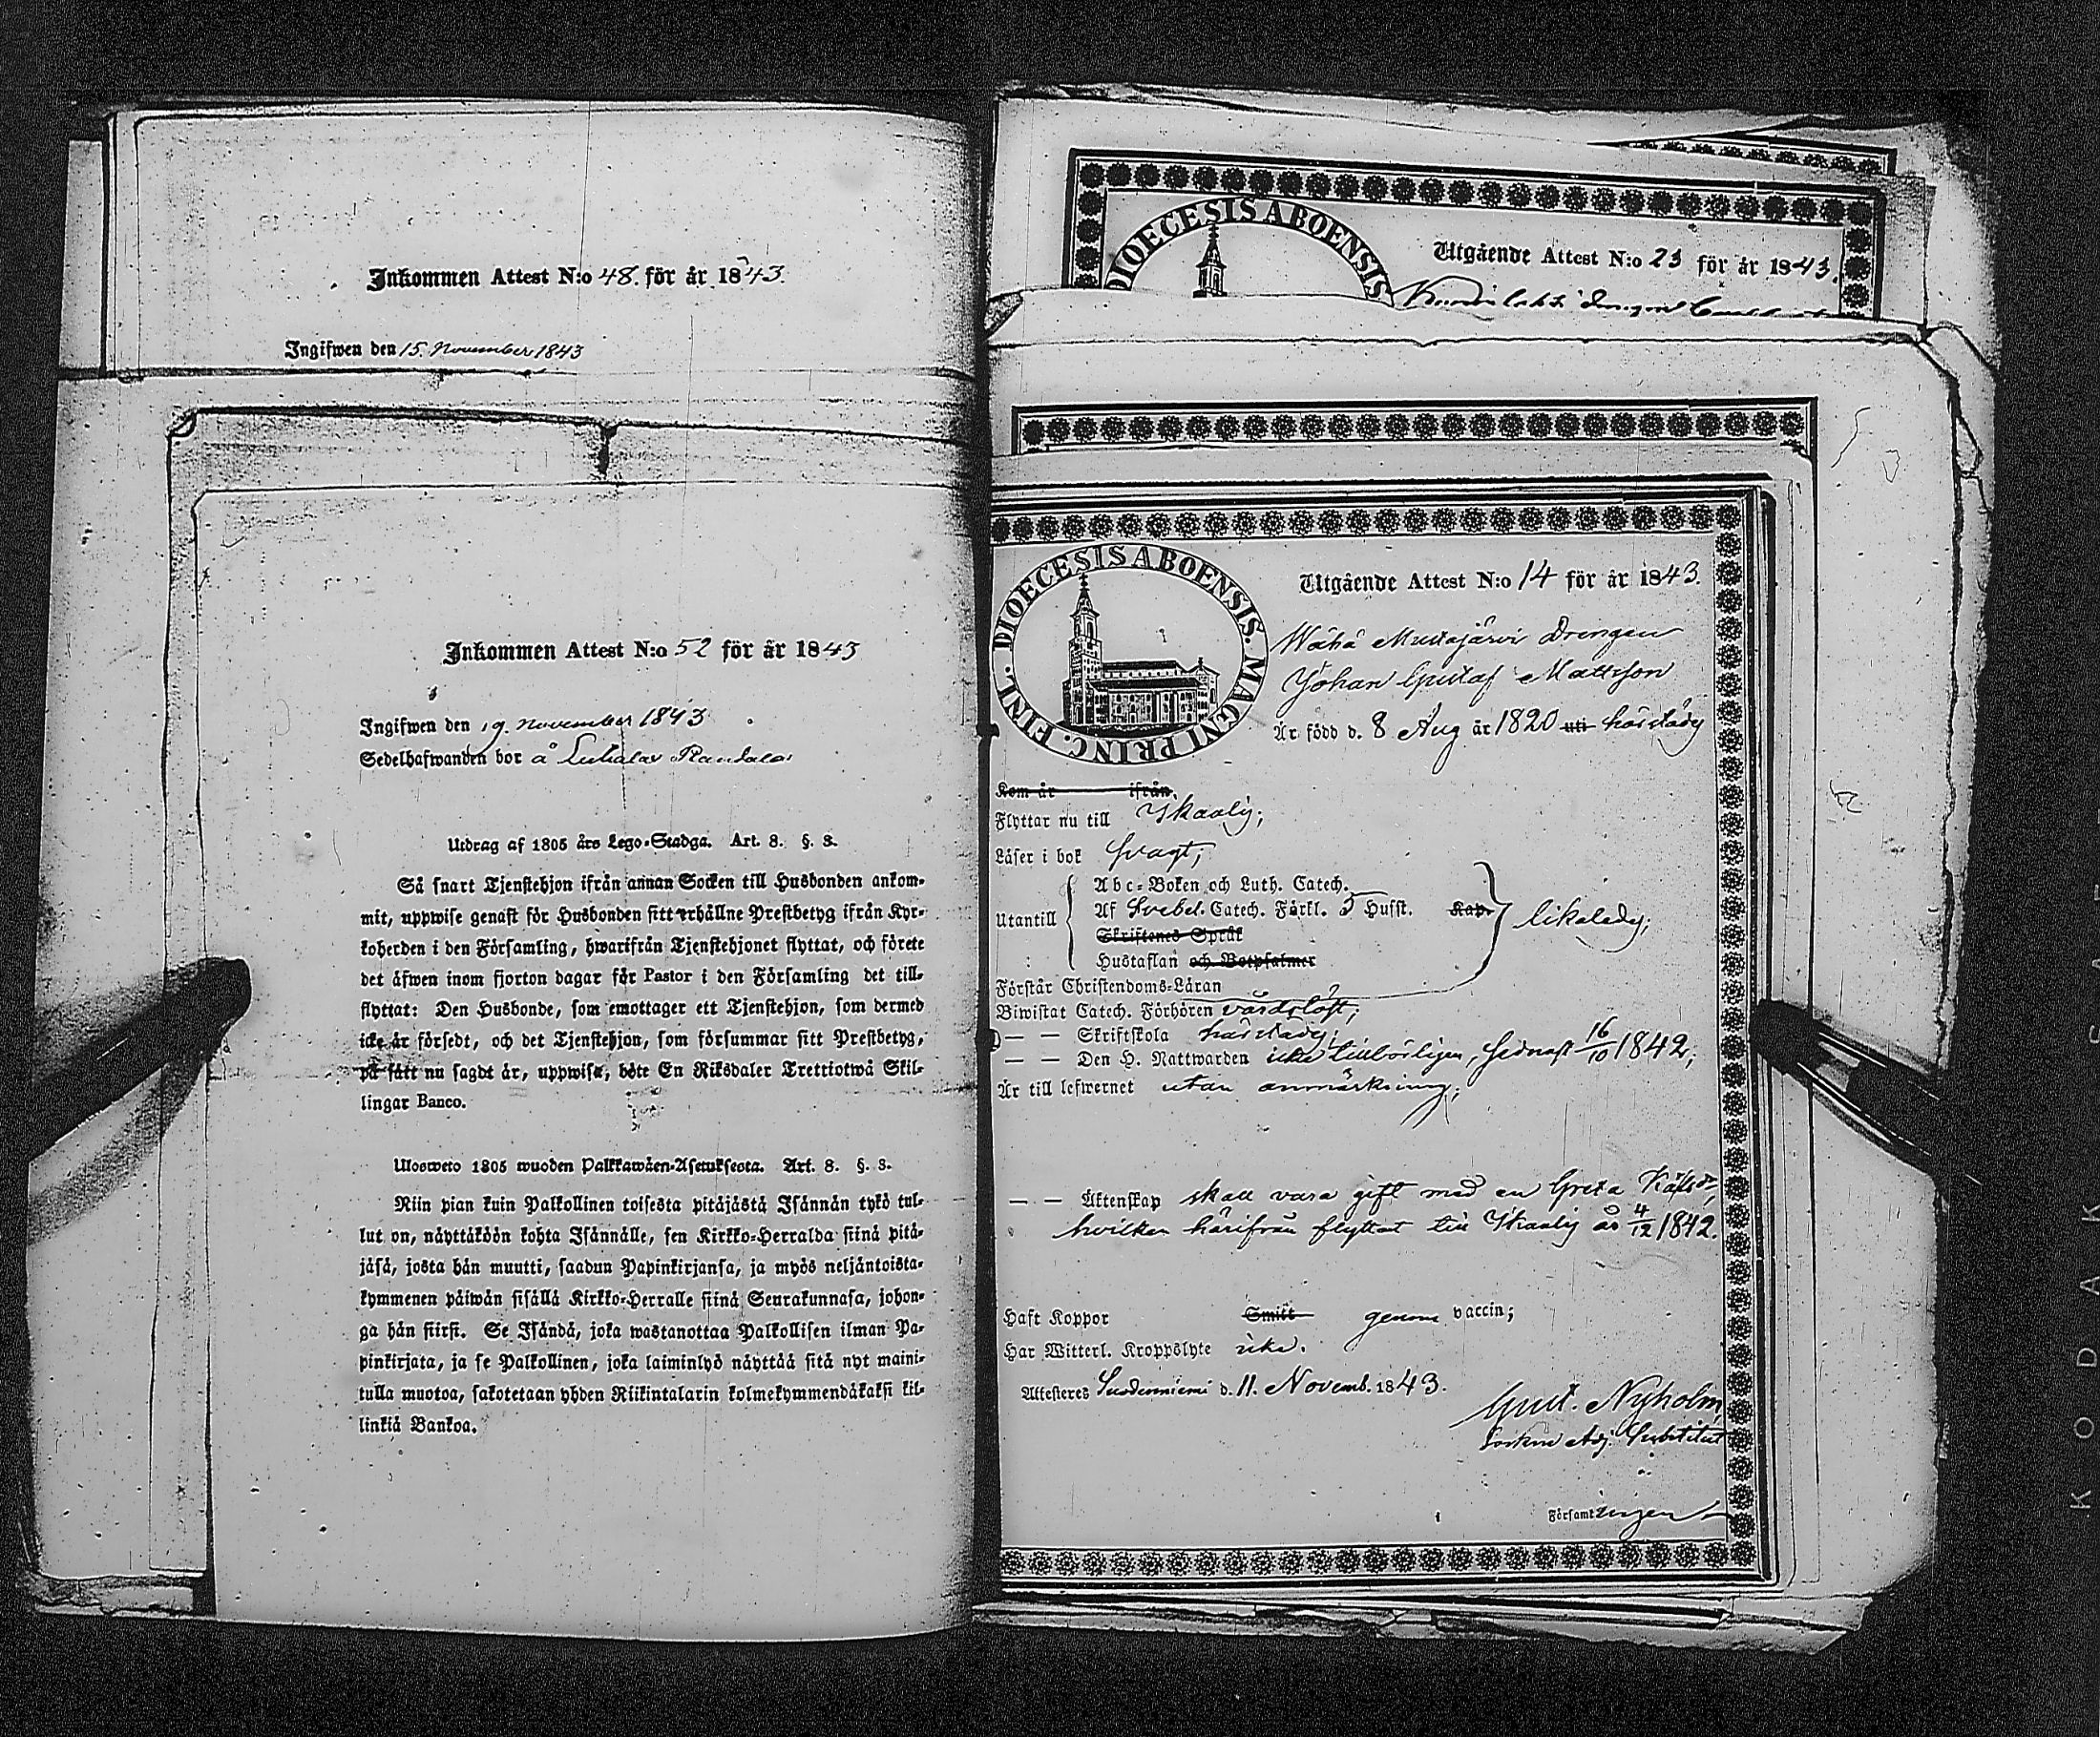 Inkommen Attest N:o 48. för år 1843.
Ingifwen den 15. November 1843
Inkommen Attest N:o 52 för år 1843
Ingifwen den 19. November 1843
Sedelhafwanden bor å
Utdrag af 1805 års Lego-Stadga. Art. 8. §. 3.
Så snart Tjenstehjon ifrån annan Socken till Husbonden ankom-
mit, uppwise genast för Husbonden sitt erhållne Prestbetyg ifrån Kyr-
koherden i den Församling, hwarifrån Tjenstehjonet flyttat, och förete
det äfwen inom fjorton dagar för Pastor i den Församling det till-
flyttat: Den Husbonde, som emottager ett Tjenstehjon, som dermed
icke är försedt, och det Tjenstehjon, som försummar sitt Prestbetyg,
på sått nu sagdt är, uppwisa, böte En Riksdaler Trettiotwå Skil-
lingar Banco.
Ulosweto 1805 wuoden Palkkawäen-Asetuksesta. Art. 8. §. 3.
Niin pian kuin Palkollinen toisesta pitäjästä Isännän tykö tul-
lut on, näyttäköön kohta Isännälle, sen Kirkko-Herralda siinä pitä-
jäsä, josta hän muutti, saadun Papinkirjansa, ja myös neljäntoista-
kymmenen päiwän sisällä Kirkko-Herralle siinä Seurakunnasa, johon-
ga hän siirsi. Se Isändä, joka wastanottaa Palkollisen ilman Pa-
pinkirjata, ja se Palkollinen, joka laiminlyö näyttää sitä nyt maini-
tulla muotoa, sakotetaan yhden Riikintalarin kolmekymmendäkaksi kil-
linkiä Bankoa.
DIOECESIS ABOENSIS
Utgående Attest N:o 23 för år 1843.
DIOECESIS ABOENSIS. MAGNI PRINC. FINL.
Utgående Attest N:o 14 för år 1843.
Wähä Mustajärvi Drengen
Johan Gustaf Mattsson
Är född d. 8 Aug år 1820 uti härstädes
Kom år ifrån
Flyttar nu till Ikaalis;
Läser i bok svagt;
Utantill
Abc-Boken och Luth. Catech.
Af Svebel. Catech. Förkl. 5 Husst. Kap.
Skriftenes Språk
Hustaflan och Botpsalmer
likaledes;
Förstår Christendoms-Läran
Biwistat Catech. Förhören vårdslöst;
— — Skriftskola härstädes;
— — Den H. Nattwarden icke tillbörligen, sednast 16/10 1842;
Är till lefwernet utan anmärkning;
— — Äktenskap skall vara gift med en Greta
hvilken härifrån flyttat till Ikaalis år 4/12 1842.
Haft Koppor Smitt genom vaccin;
Har Witterl. Kroppslyte icke.
Attesteres Suodenniemi d. 11. Novemb. 1843.
Gust. Nyholm
Sockne Adj. Substitut
Församlingen